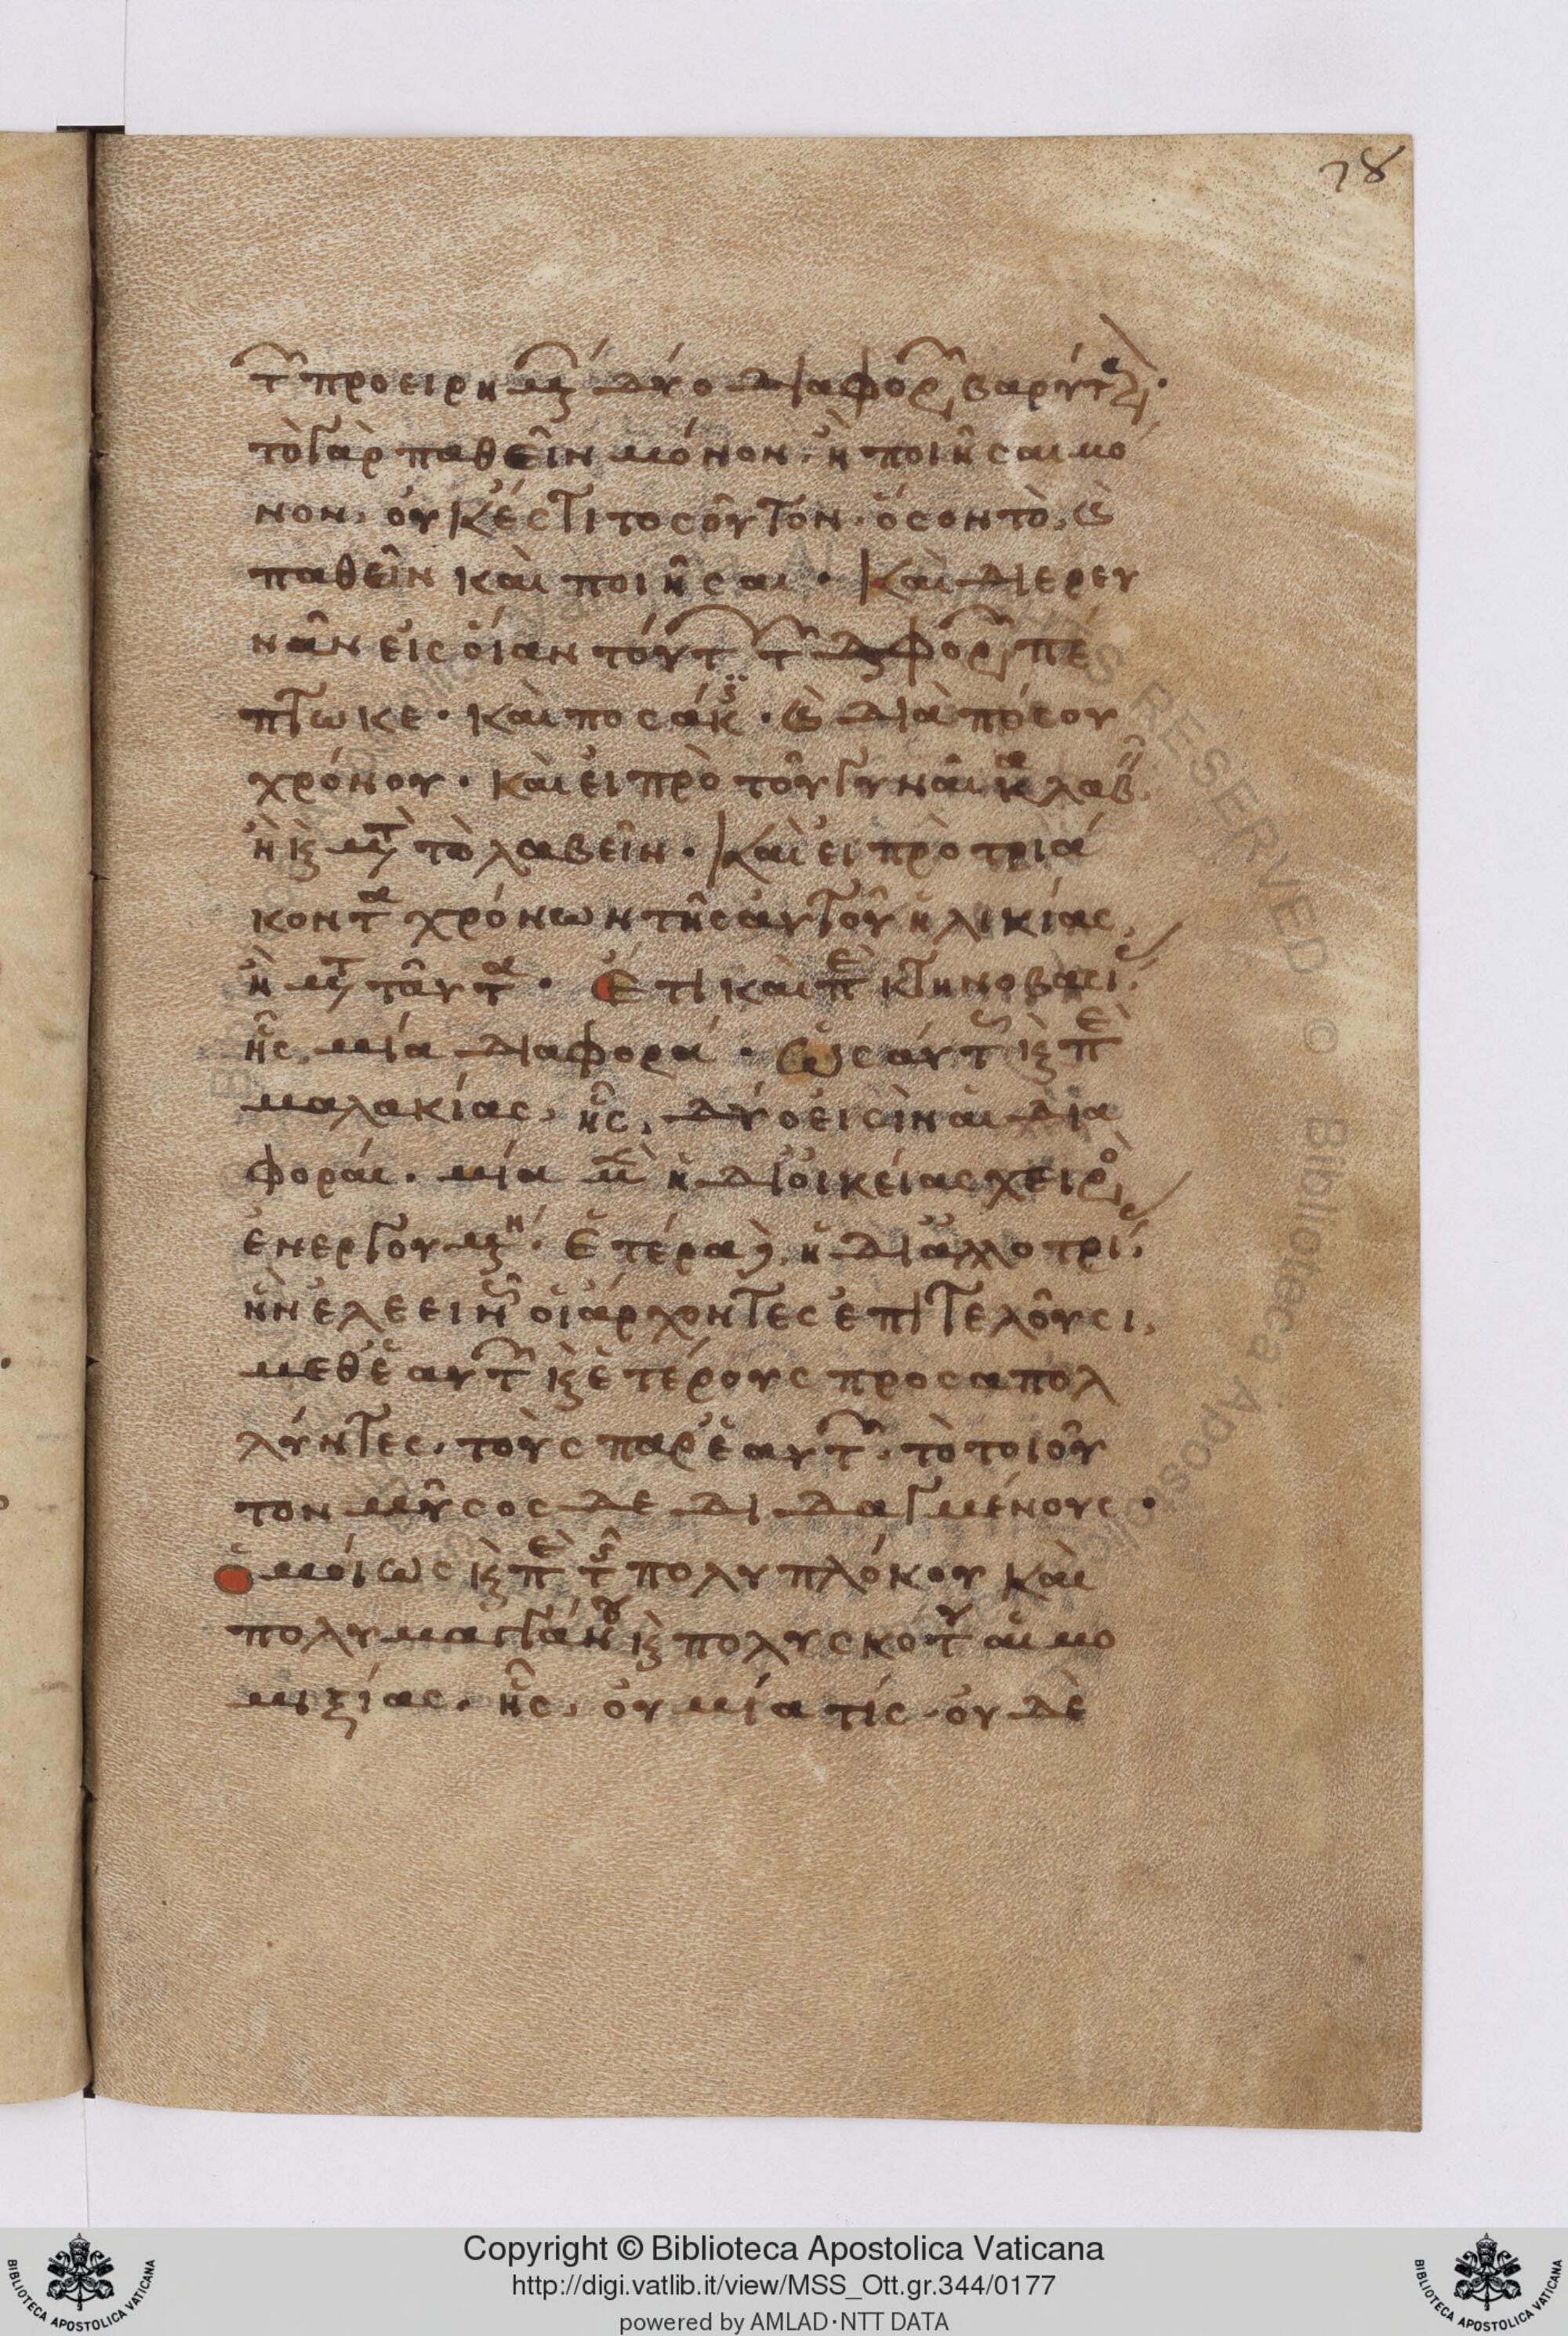 78
τῶν προειρημένων δύο διαφορῶν βαρύτερον·
τὸ γὰρ παθεῖν μόνον, ἢ ποιῆσαι μό
νον, οὐκ ἔστι τοσοῦτον· ὅσον τὸ, καὶ
παθεῖν καὶ ποιῆσαι· καὶ διερευ
νᾶν εἰς οἵαν τούτων τῶν διαφορῶν πέ
πτωκε· καὶ ποσάκις· καὶ διὰ πόσου
χρόνου· καὶ εἰ πρὸ τοῦ γυναῖκα λαβεῖν,
ἢ καὶ μετὰ τὸ λαβεῖν· καὶ εἰ πρὸ τριά
κοντα χρόνων τῆς αὐτοῦ ἡλικίας,
ἢ μετὰ ταῦτα· Ἔτι καὶ περὶ κτηνοβασίας,
ἧς, μία διαφορά· Ὡσαύτως καὶ περὶ
μαλακίας, ἧς, δύο εἰσὶν αἱ δια
φοραί· μία μὲν ἡ δι' οἰκείας χειρὸς
ἐνεργουμένη· ἑτέρα δὲ, ἡ δι' ἀλλοτρίας,
ἣν ἐλεεινῶς οἱ ἄρχοντες ἐπιτελοῦσι,
μεθ' ἑαυτῶν καὶ ἑτέρους προσαπολ
λύντες, τοὺς παρ' ἑαυτῶν, τὸ τοιοῦ
τον μῦσος δεδιδαγμένους·
Ὁμοίως καὶ περὶ τῆς πολυπλόκου καὶ
πολυμαγγάνου καὶ πολυσκότου αἱμο
μιξίας, ἧς, οὐ μία τίς, οὐδὲ
Copyright © Biblioteca Apostolica Vaticana
http://digi.vatlib.it/view/MSS_Ott.gr.344/0177
powered by AMLAD·NTT DATA